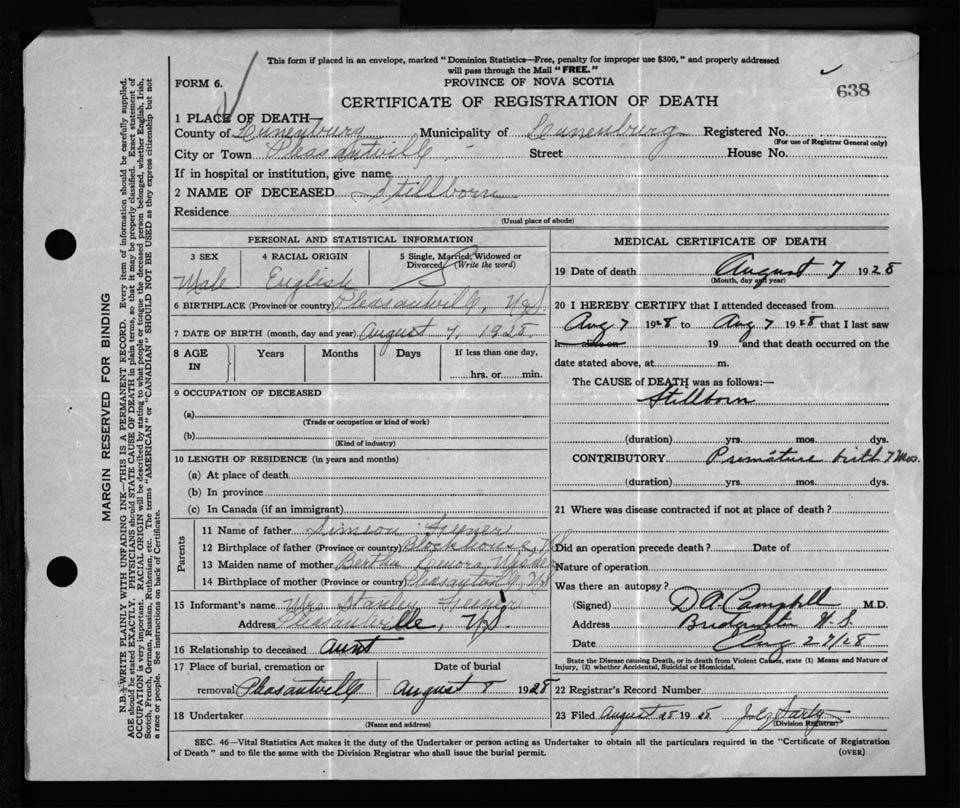 This form if placed in an envelope, marked "Dominion Statistics—Free, penalty for improper use $300," and properly addressed
will pass through the Mail "FREE."
FORM 6.
PROVINCE OF NOVA SCOTIA
638
CERTIFICATE OF REGISTRATION OF DEATH
1 PLACE OF DEATH
County of Lunenburg Municipality of Lunenburg Registered No.
(For use of Registrar General only)
City or Town Pleasantville Street House No.
If in hospital or institution, give name
2 NAME OF DECEASED Stillborn
Residence
(Usual place of abode)
PERSONAL AND STATISTICAL INFORMATION
3 SEX 4 RACIAL ORIGIN 5 Single, Married, Widowed or Divorced (Write the word)
Male English S
6 BIRTHPLACE (Province or country) Pleasantville, N.S.
7 DATE OF BIRTH (month, day and year) August 7, 1928.
8 AGE IN Years Months Days If less than one day,
hrs. or min.
9 OCCUPATION OF DECEASED
(a)
(Trade or occupation or kind of work)
(b)
(Kind of industry)
10 LENGTH OF RESIDENCE (in years and months)
(a) At place of death
(b) In province
(c) In Canada (if an immigrant)
Parents
11 Name of father Simeon
12 Birthplace of father (Province or country) Blockhouse, N.S.
13 Maiden name of mother Bertha Lenora
14 Birthplace of mother (Province or country) Pleasantville, N.S.
15 Informant's name Mrs Stanley
Address Pleasantville, N.S.
16 Relationship to deceased Aunt
17 Place of burial, cremation or Date of burial
removal Pleasantville August 8 1928
18 Undertaker
(Name and address)
MEDICAL CERTIFICATE OF DEATH
19 Date of death August 7 1928
(Month, day and year)
20 I HEREBY CERTIFY that I attended deceased from
Aug 7 1928 to Aug 7 1928 that I last saw
h alive on 19 and that death occurred on the
date stated above, at m.
The CAUSE of DEATH was as follows:—
Stillborn
(duration) yrs. mos. dys.
CONTRIBUTORY Premature birth 7 Mos.
(duration) yrs. mos. dys.
21 Where was disease contracted if not at place of death?
Did an operation precede death? Date of
Nature of operation
Was there an autopsy?
(Signed) D A Campbell M.D.
Address Bridgewater N.S.
Date Aug 27/28
State the Disease causing Death, or in death from Violent Causes, state (1) Means and Nature of
Injury, (2) whether Accidental, Suicidal or Homicidal.
22 Registrar's Record Number
23 Filed August 28 1928 Sarty
(Division Registrar)
SEC. 46—Vital Statistics Act makes it the duty of the Undertaker or person acting as Undertaker to obtain all the particulars required in the "Certificate of Registration
of Death" and to file the same with the Division Registrar who shall issue the burial permit.
(OVER)
MARGIN RESERVED FOR BINDING
N.B.—WRITE PLAINLY WITH UNFADING INK—THIS IS A PERMANENT RECORD. Every item of information should be carefully supplied.
AGE should be stated EXACTLY. PHYSICIANS should STATE CAUSE OF DEATH in plain terms, so that it may be properly classified. Exact statement of
OCCUPATION is very important. RACIAL ORIGIN will be described by stating to what people or tongue the deceased person belonged, whether English, Irish,
Scotch, French, German, Russian, Ruthenian, etc. The terms "AMERICAN" or "CANADIAN" SHOULD NOT BE USED as they express citizenship but not
a race or people. See instructions on back of Certificate.